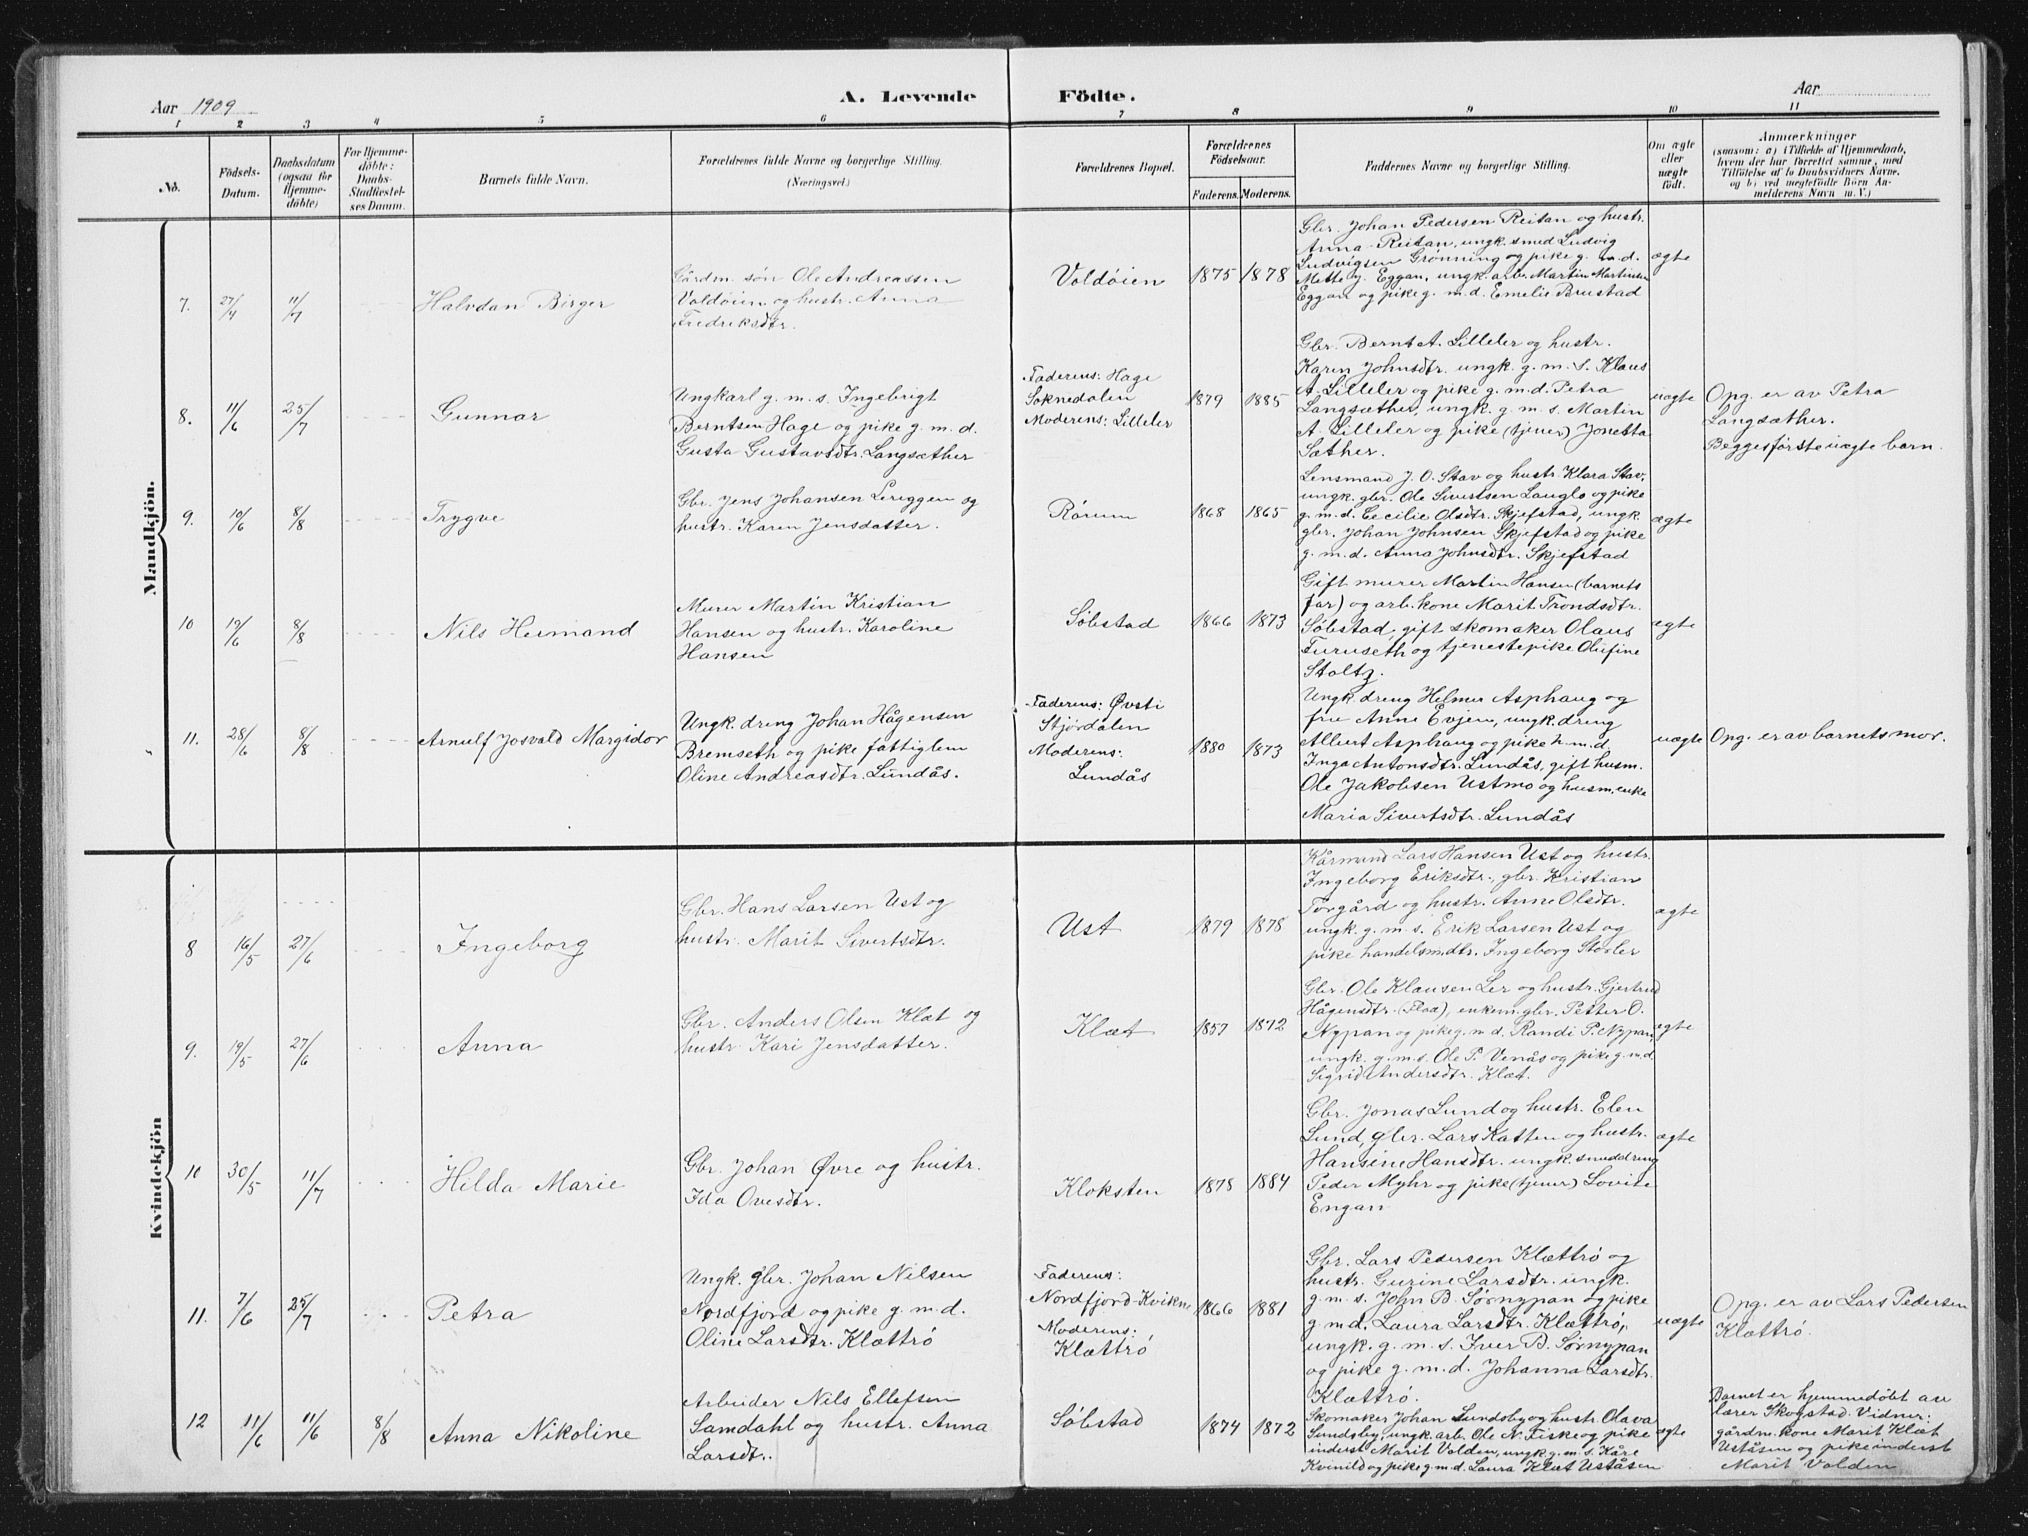 Aar 1909
A. Levende
Födte.
Aar
1 2 3 4 5 6 7 8 9 10 11
No.
Födsels-
Datum.
Daabsdatum
(ogsaa for
Hjemme-
döbte)
For Hjemme-
döbte:
Daabs-
Stadfæstel-
ses Datum.
Barnets fulde Navn.
Forældrenes fulde Navne og borgerlige Stilling.
(Næringsvei.)
Forældrenes Bopæl.
Forældrenes
Fødselsaar.
Faderens. Moderens.
Faddernes Navne og borgerlige Stilling.
Om ægte
eller
uægte
födt.
Anmærkninger
(saasom: a) i Tilfælde af Hjemmedaab,
hvem der har forrettet samme, med
Tilföielse af to Daabsvidners Navne,
og b) ved uægtefödte Börn An-
melderens Navn m. V.)
Mandkjön.
7. 27/4 11/7
Halvdan Birger
Gårdm. søn Ole Andreassen
Voldöien og hustr. Anna
Fredriksdtr.
Voldöien
1875 1878
Gbr. Johan Pedersen Reitan og hustr.
Anna Reitan, ungk. smed Ludvig
Ludvigsen Grønning og pike g. m. d.
Mette g. Eggan, ungk. arb. Martin Martinsen
Eggan og pike g. m. d. Emelie Brustad
ægte
8. 11/6 25/7
Gunnar
Ungkarl g. m. s. Ingebrigt
Berntsen Hage og pike g. m. d.
Gusta Gustavsdtr. Langsæther
Faderens: Hage
Soknedalen
Moderens: Lilleler
1879 1885
Gbr. Bernt A. Lilleler og hustr.
Karen Johnsdtr. ungk. g. m. s. Klaus
A. Lilleler og pike g. m. d. Petra
Langsæther, ungk. g. m. s. Martin
A. Lilleler og pike (tjener) Jonetta
Sæther.
uægte
Opg. er av Petra
Langsæther.
Begges første uægte barn.
9. 10/6 8/8
Trygve
Gbr. Jens Johansen Lereggen og
hustr. Karen Jensdatter.
Rörum
1868 1865
Lensmand J. O. Stav og hustr. Klara Stav,
ungk. gbr. Ole Sivertsen Lauglo og pike
g. m. d. Cecilie Olsdtr. Skjefstad, ungk.
gbr. Johan Johnsen Skjefstad og pike
g. m. d. Anna Johnsdtr. Skjefstad
ægte
10 19/6 8/8
Nils Hermand
Murer Martin Kristian
Hansen og hustr. Karoline
Hansen
Søbstad
1866 1873
Gift murer Martin Hansen (barnets
far) og arb. kone Marit Trondsdtr.
Søbstad, gift skomaker Olaus
Furuseth og tjenestepike Olufine
Stoltz.
ægte
11. 28/6 8/8
Arnulf Josvald Margidor
Ungk. dreng Johan Hågensen
Bremseth og pike fattiglem
Oline Andreasdtr. Lundås.
Faderens: Øvsti
Stjørdalen
Moderens:
Lundås
1880 1873
Ungk. dreng Helmer Asphaug og
frue Anne Evjen, ungk. dreng
Albert Asphaug og pike h. m. d.
Inga Antonsdtr. Lundås, gift husm.
Ole Jakobsen Ustmo og husm. enke
Maria Sivertsdtr. Lundås
uægte
Opg. er av barnets mor.
Kvindekjön
8 16/5 27/6
Ingeborg
Gbr. Hans Larsen Ust og
hustr. Marit Sivertsdtr.
Ust
1879 1878
Kårmand Lars Hansen Ust og hustr.
Ingeborg Eriksdtr., gbr. Kristian
Torgård og hustr. Anne Olsdtr.
ungk. g. m. s. Erik Larsen Ust og
pike handelsmdtr. Ingeborg Storler
ægte
9. 19/5 27/6
Anna
Gbr. Anders Olsen Klæt og
hustr. Kari Jensdatter.
Klæt
1857 1872
Gbr. Ole Klausen Ler og hustr. Gjertrud
Hågensdtr. (Flaa), enkem. gbr. Petter O.
Nypan og pike g. m. d. Randi P. Nypan,
ungk. g. m. s. Ole P. Venås og pike g. m. d.
Sigrid Andersdtr. Klæt.
ægte
10 30/5 11/7
Hilda Marie
Gbr. Johan Øvre og hustr.
Ida Ovesdtr.
Kloksten
1878 1884
Gbr. Jonas Lund og hustr. Elen
Lund, gbr. Lars Katten og hustr.
Hansine Hansdtr. ungk. smeddreng
Peder Myhr og pike (tjener) Lovise
Engan
ægte
11. 7/6 25/7
Petra
Ungk. gbr. Johan Nilsen
Nordfjord og pike g. m. d.
Oline Larsdtr. Klættrö
Faderens:
Nordfjord-Kvikne
Moderens:
Klættrö
1866 1881
Gbr. Lars Pedersen Klættrö og
hustr. Gurine Larsdtr. ungk.
g. m. s. John B. Sørnypan og pike
g. m. d. Laura Larsdtr. Klættrö,
ungk. g. m. s. Iver B. Sørnypan
og pike g. m. d. Johanna Larsdtr.
Klættrö.
uægte
Opg. er av Lars Pedersen
Klættrö.
12 11/6 11/6 8/8
Anna Nikoline
Arbeider Nils Ellefsen
Samdahl og hustr. Anna
Larsdt.
Søbstad
1874 1872
Skomaker Johan Lundsby og hustr. Olava
Lundsby, ungk. arb. Ole N. Fiske og pike
inderst Marit Valden, ungk. g. m. s. Kåre
Kvinild og pike g. m. d. Laura Klæt Uståsen
ægte
Barnet er hjemmedøbt av
lærer Skogstad. Vidner:
gårdm. kone Marit Klæt
Uståsen og pike inderst
Marit Valden